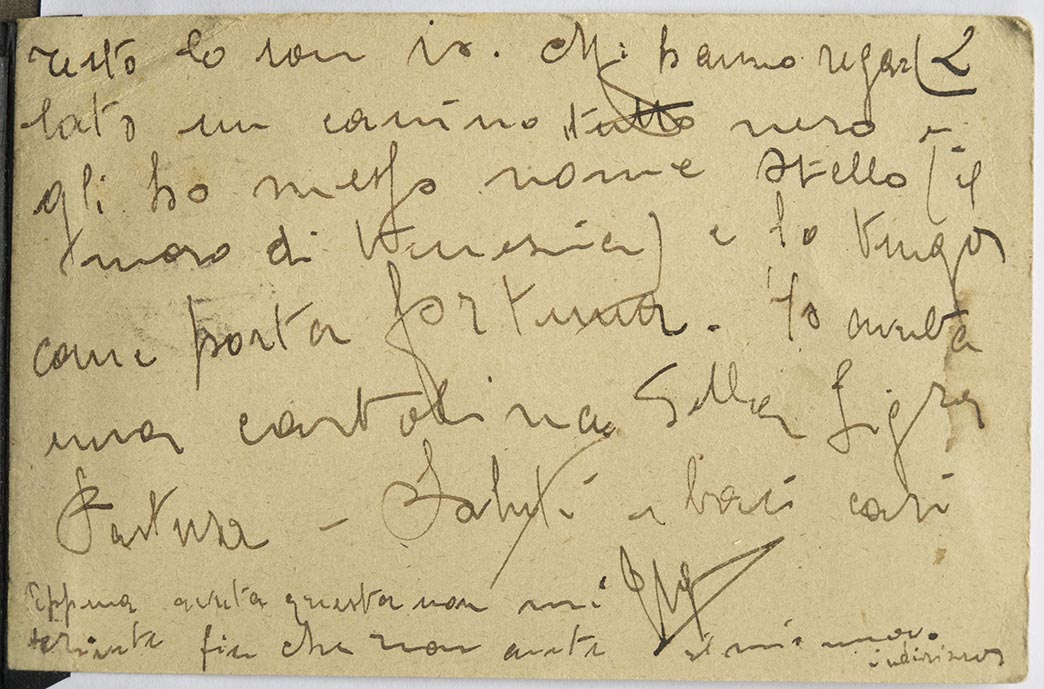 resto lo son io. Mi hanno rega- 2
lato un canino tutto nero e
gli ho messo nome Otello (il
moro di Venezia) e lo tengo
come porta fortuna. Ho avuta
una cartolina della Sigra
Saluti e baci cari
Eppena avuta questa non mi
scrivete fin che non avete il mio nuovo
indirizzo